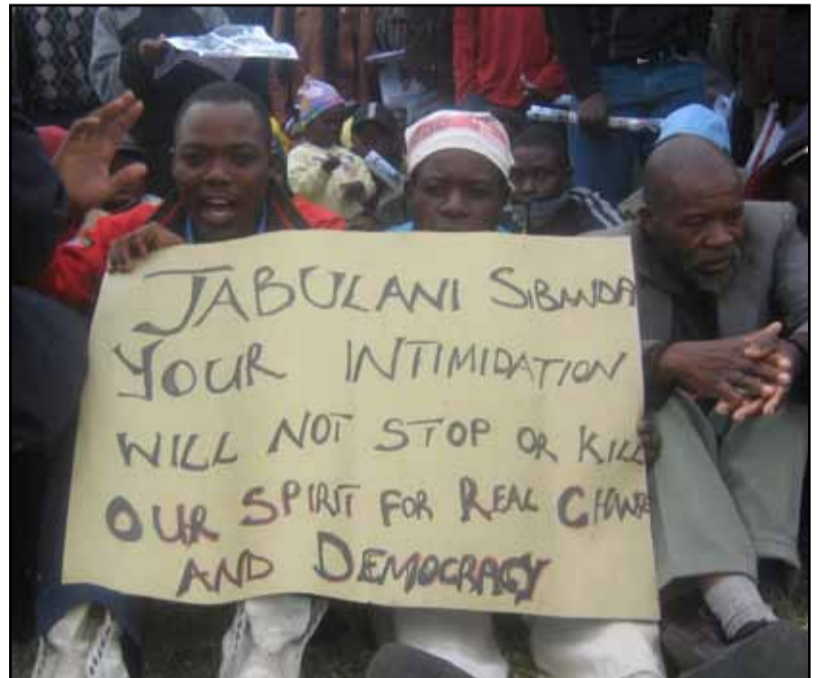 JABULANI SIBANDA
YOUR INTIMIDATION
WILL NOT STOP OR KILL
OUR SPIRIT FOR REAL CHANGE
AND DEMOCRACY